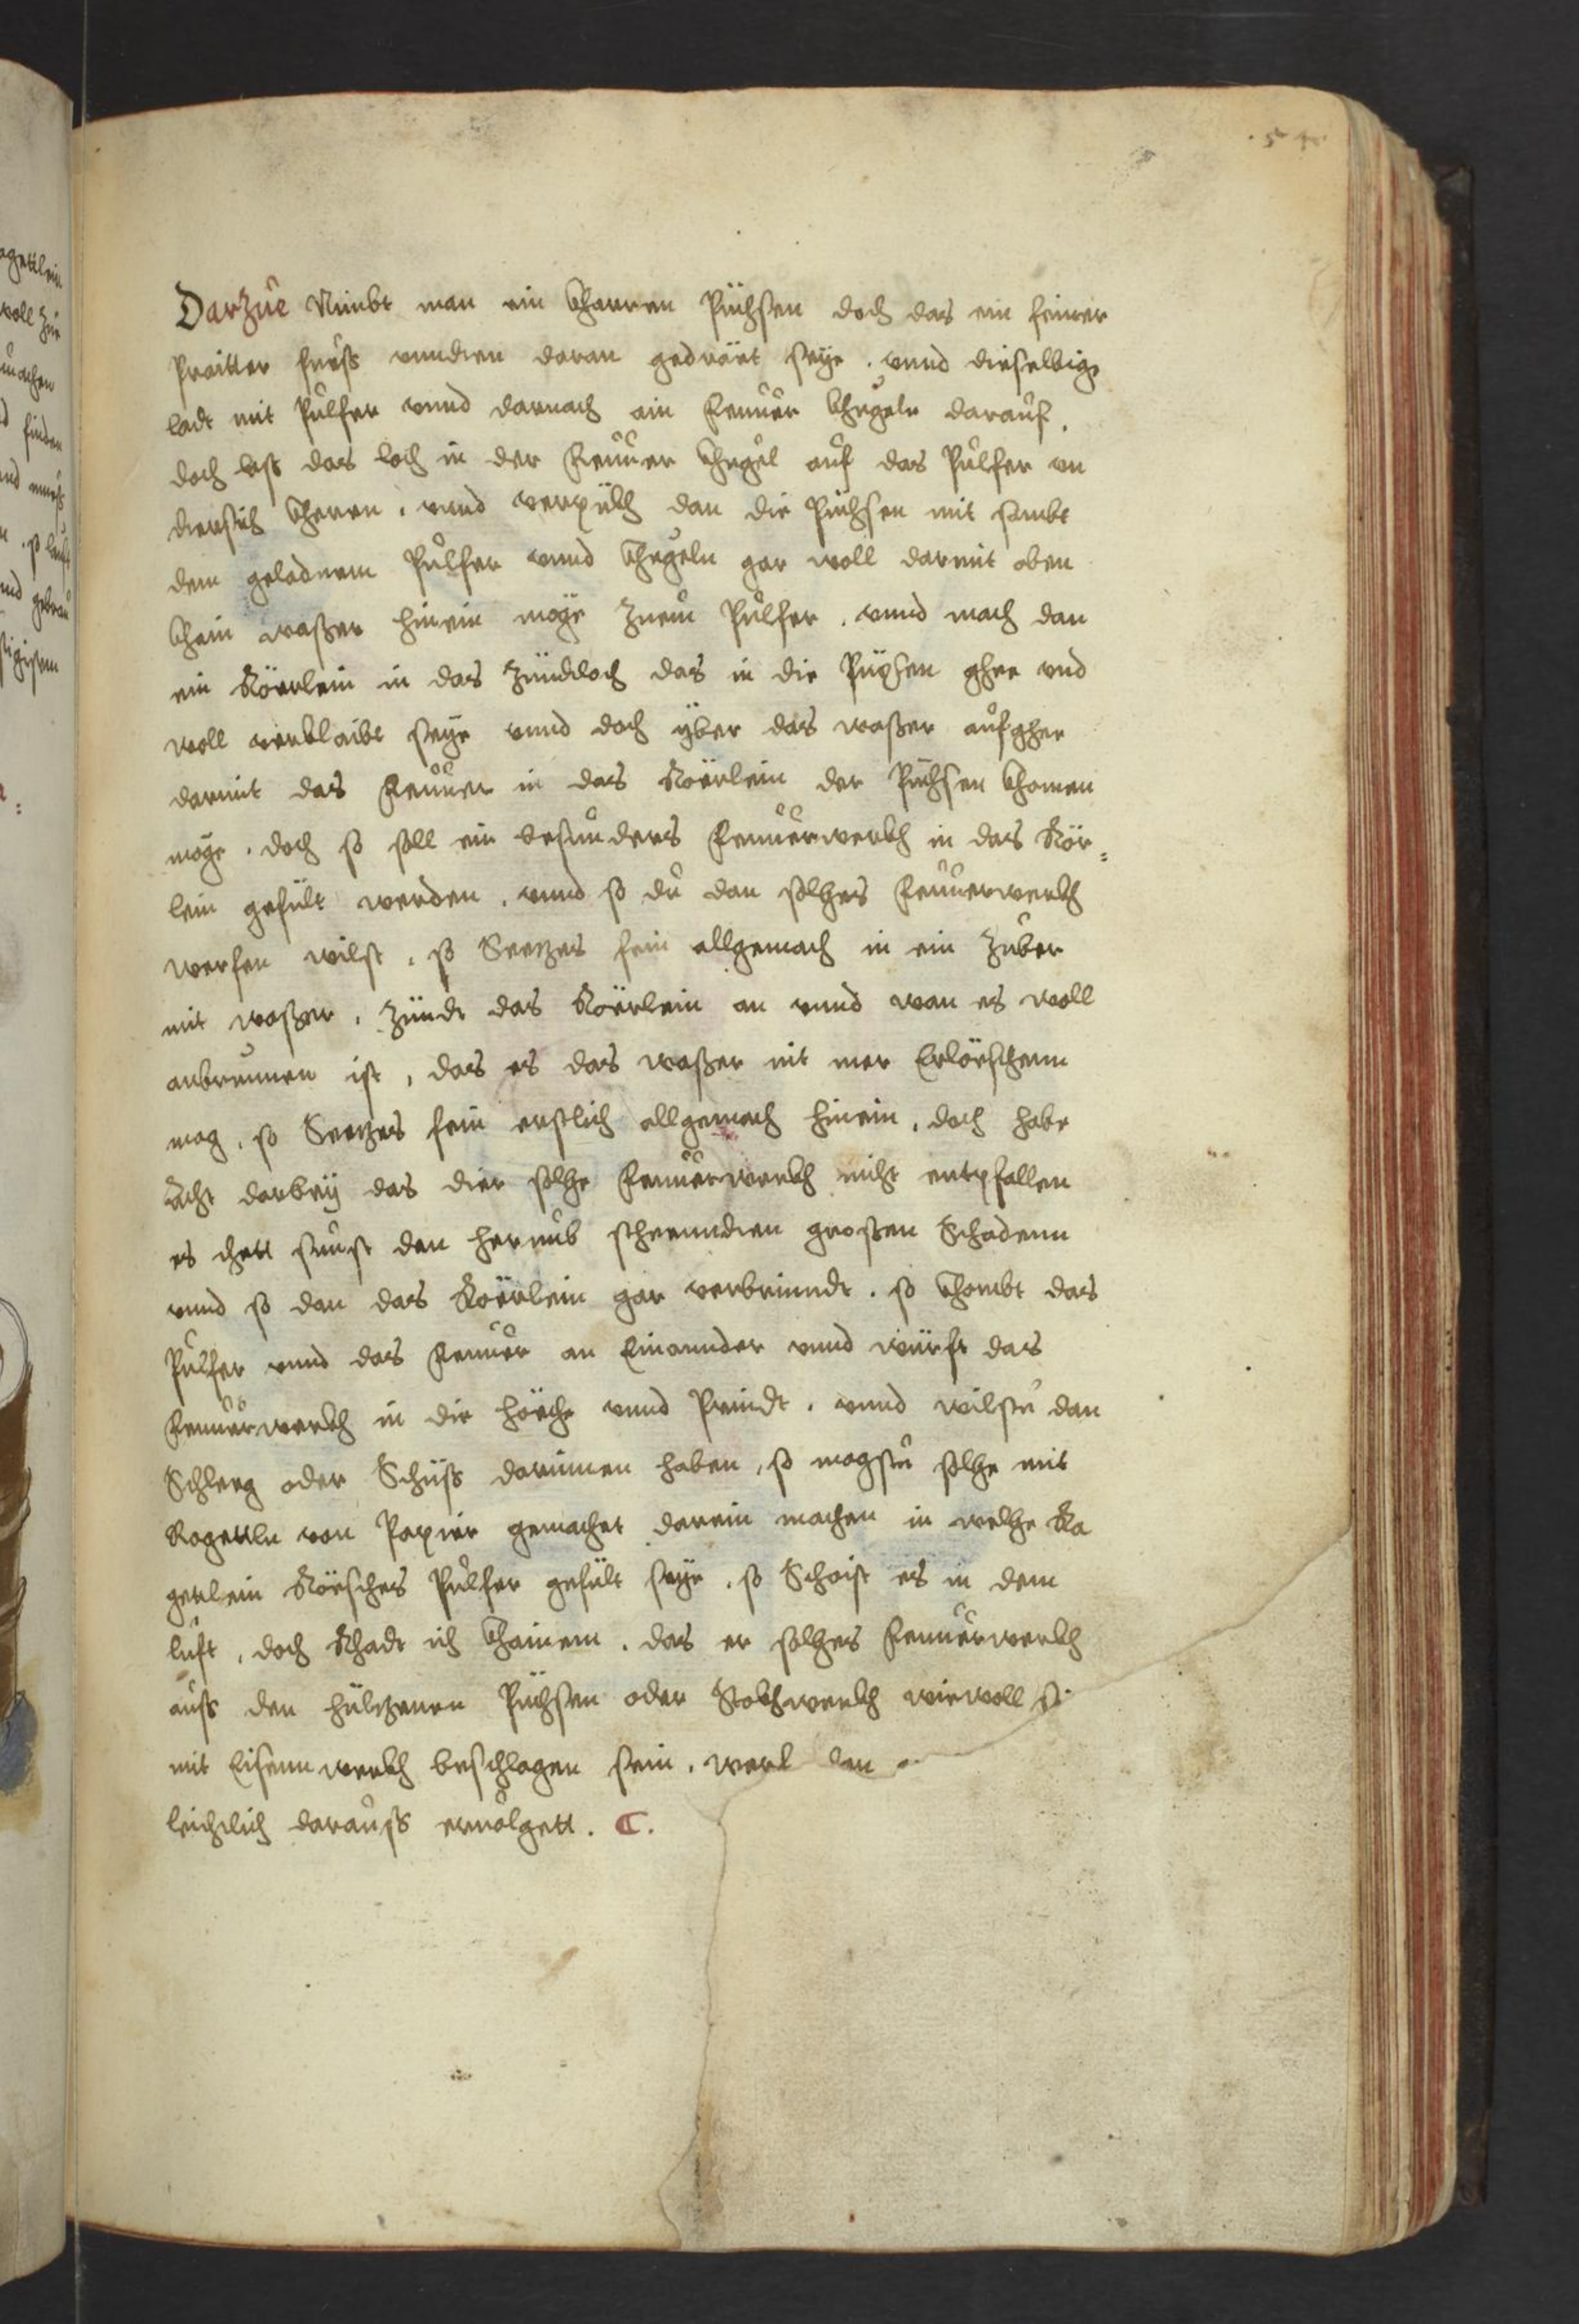 54
Darzue Nimbt man ein kharren Püchsen doch das ein feiner
Praitter fuess vnndten daran gedräet seye . vnnd dieselbige
ladt mit Pulfer vnnd darnach ain Feuuer khugeln darauf .
doch lass das loch in der Feuuer khugel auf das Pulfer vn
dersich kheren . vnnd verpükh dan die Püchsen mit sambt
dem geladnem Pulfer vnnd khugeln gar woll darmit oben
khain wasser hinein möge zuem Pulfer . vnnd mach dan
ein Rörrlein in das Zündloch das in die Püxsen ghee vnd
woll verklaibt seye vnnd doch yber das wasser aufghee
darmit das Feuuer in das Röerlein der Püchsen khomen
möge . doch so soll ein besunders Feuuerwerkh in das Rör=
lein gefült werden . vnnd so du dan solches Feuuerwerkh
werfen wilst . so Seezes fein allgemach in ein Zuber
mit wasser . Zündt das Röerlein an vnnd wan es woll
anbrunnen ist , das es das wasser nit mer Erlöschenn
mag . so Seezes fein erstlich allgemach hinein . doch habe
Acht darbey das dier solche Feuuerwerkh nicht entpfallen
es thett sunst den herumb steenndten grossen Schadenn
vnnd so dan das Röerlein gar verbrinndt . so khombt das
Pulfer vnnd das Feuuer an Einannder vnnd würft das
Feuuerwerkh in die höeche vnnd Prindt . vnnd wilstu dan
Schleg oder Schüss darinnen haben , so magstu solche mit
Rogettln von Papier gemachet darein machen in welche Ra
gettlein Röesches Pulfer gefült seye . so Schoist es in dem
luft . doch Rhadt ich khainem . das er solches Feuuerwerkh
auss den hültzenen Püchsen oder Stokhwerkh wiewoll si
mit Eisennwerkh beschlagen sein . werf dan
leichtlich darauss ervolgett . C.